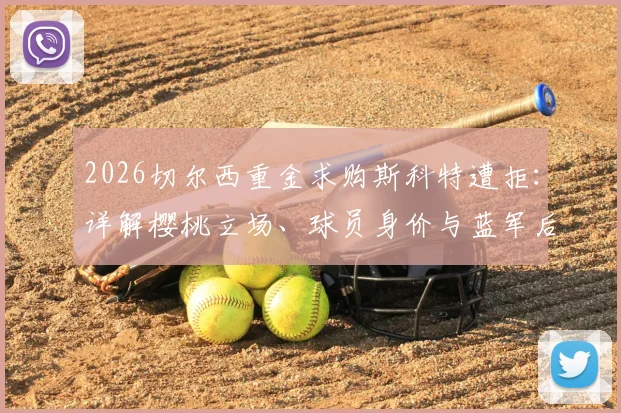 2026切尔西重金求购斯科特遭拒:
详解樱桃立场、球员身价与蓝军后